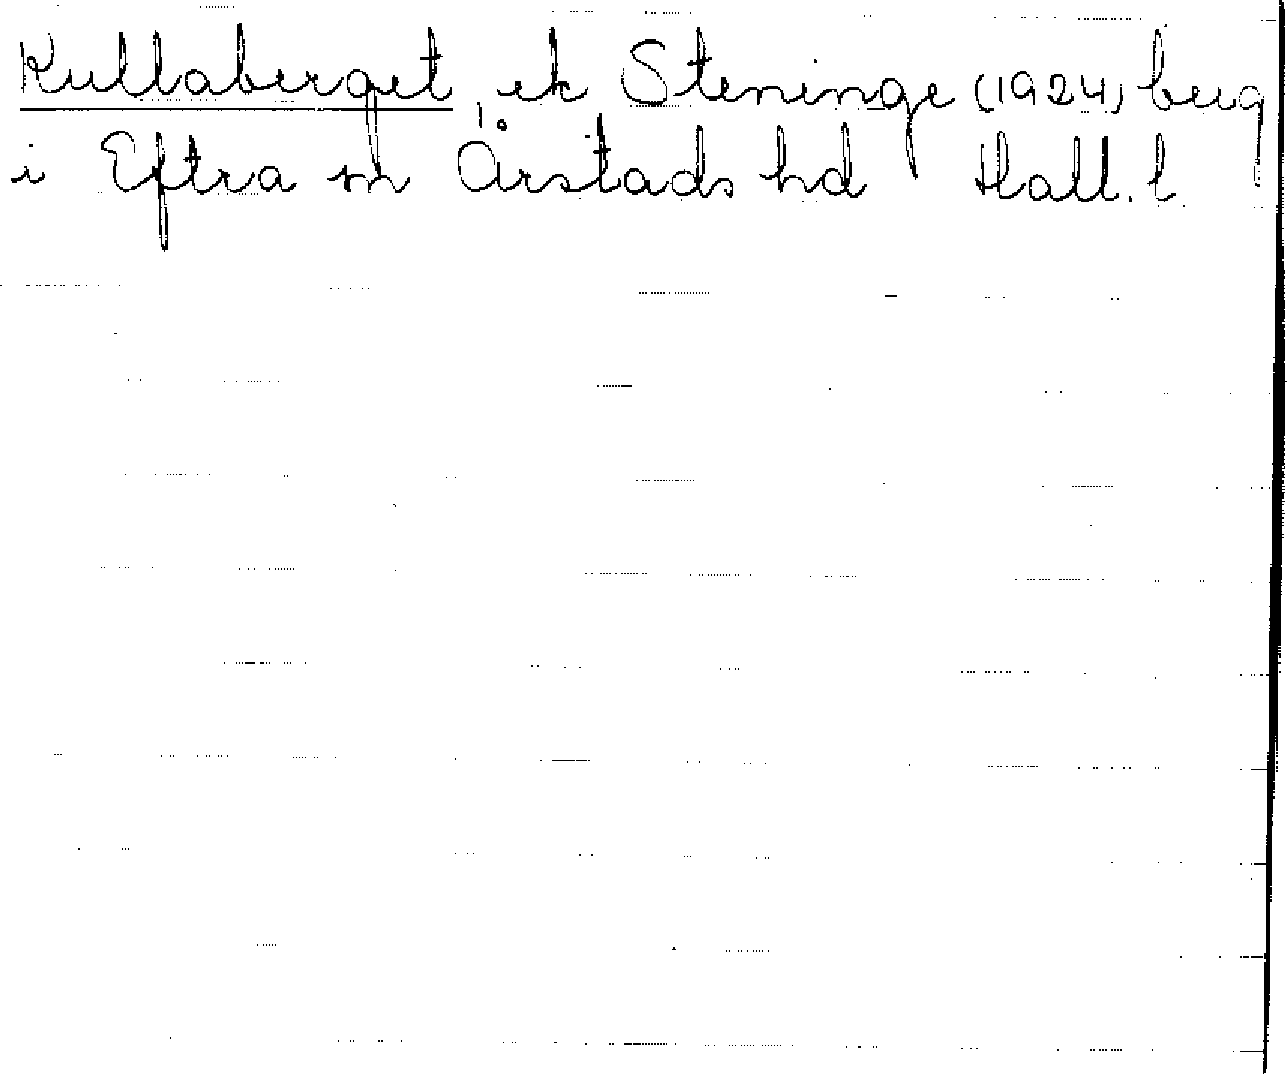 Kullaberget, ek Steninge (1924) berg
i Eftra sn Årstads hd Hall. l.